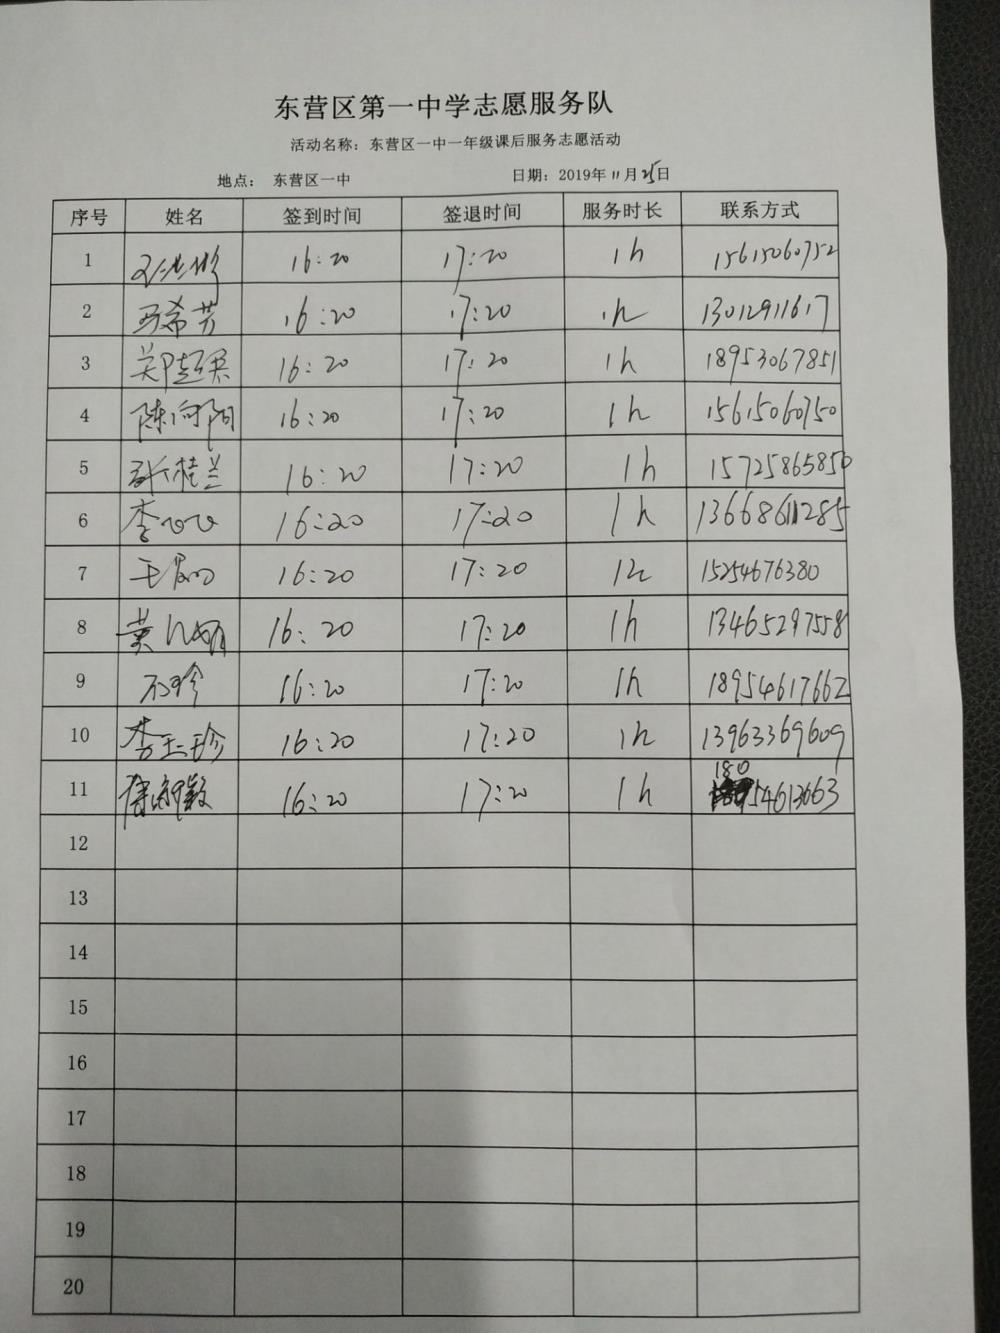 东营区第一中学志愿服务队
活动名称：东营区一中一年级课后服务志愿活动
地点： 东营区一中 日期：2019年11月25日
序号 姓名 签到时间 签退时间 服务时长 联系方式
1 16:20 17:20 1h 15615060752
2 马希芳 16:20 17:20 1h 13012911617
3 16:20 17:20 1h 18953067851
4 陈向阳 16:20 17:20 1h 15615060750
5 张桂兰 16:20 17:20 1h 15725865850
6 李 16:20 17:20 1h
7 王 16:20 17:20 1h 15254676380
8 黄 16:20 17:20 1h 13465297558
9 石珍 16:20 17:20 1h 18954617662
10 李玉珍 16:20 17:20 1h 13963369609
11 16:20 17:20 1h 18054613663
12
13
14
15
16
17
18
19
20